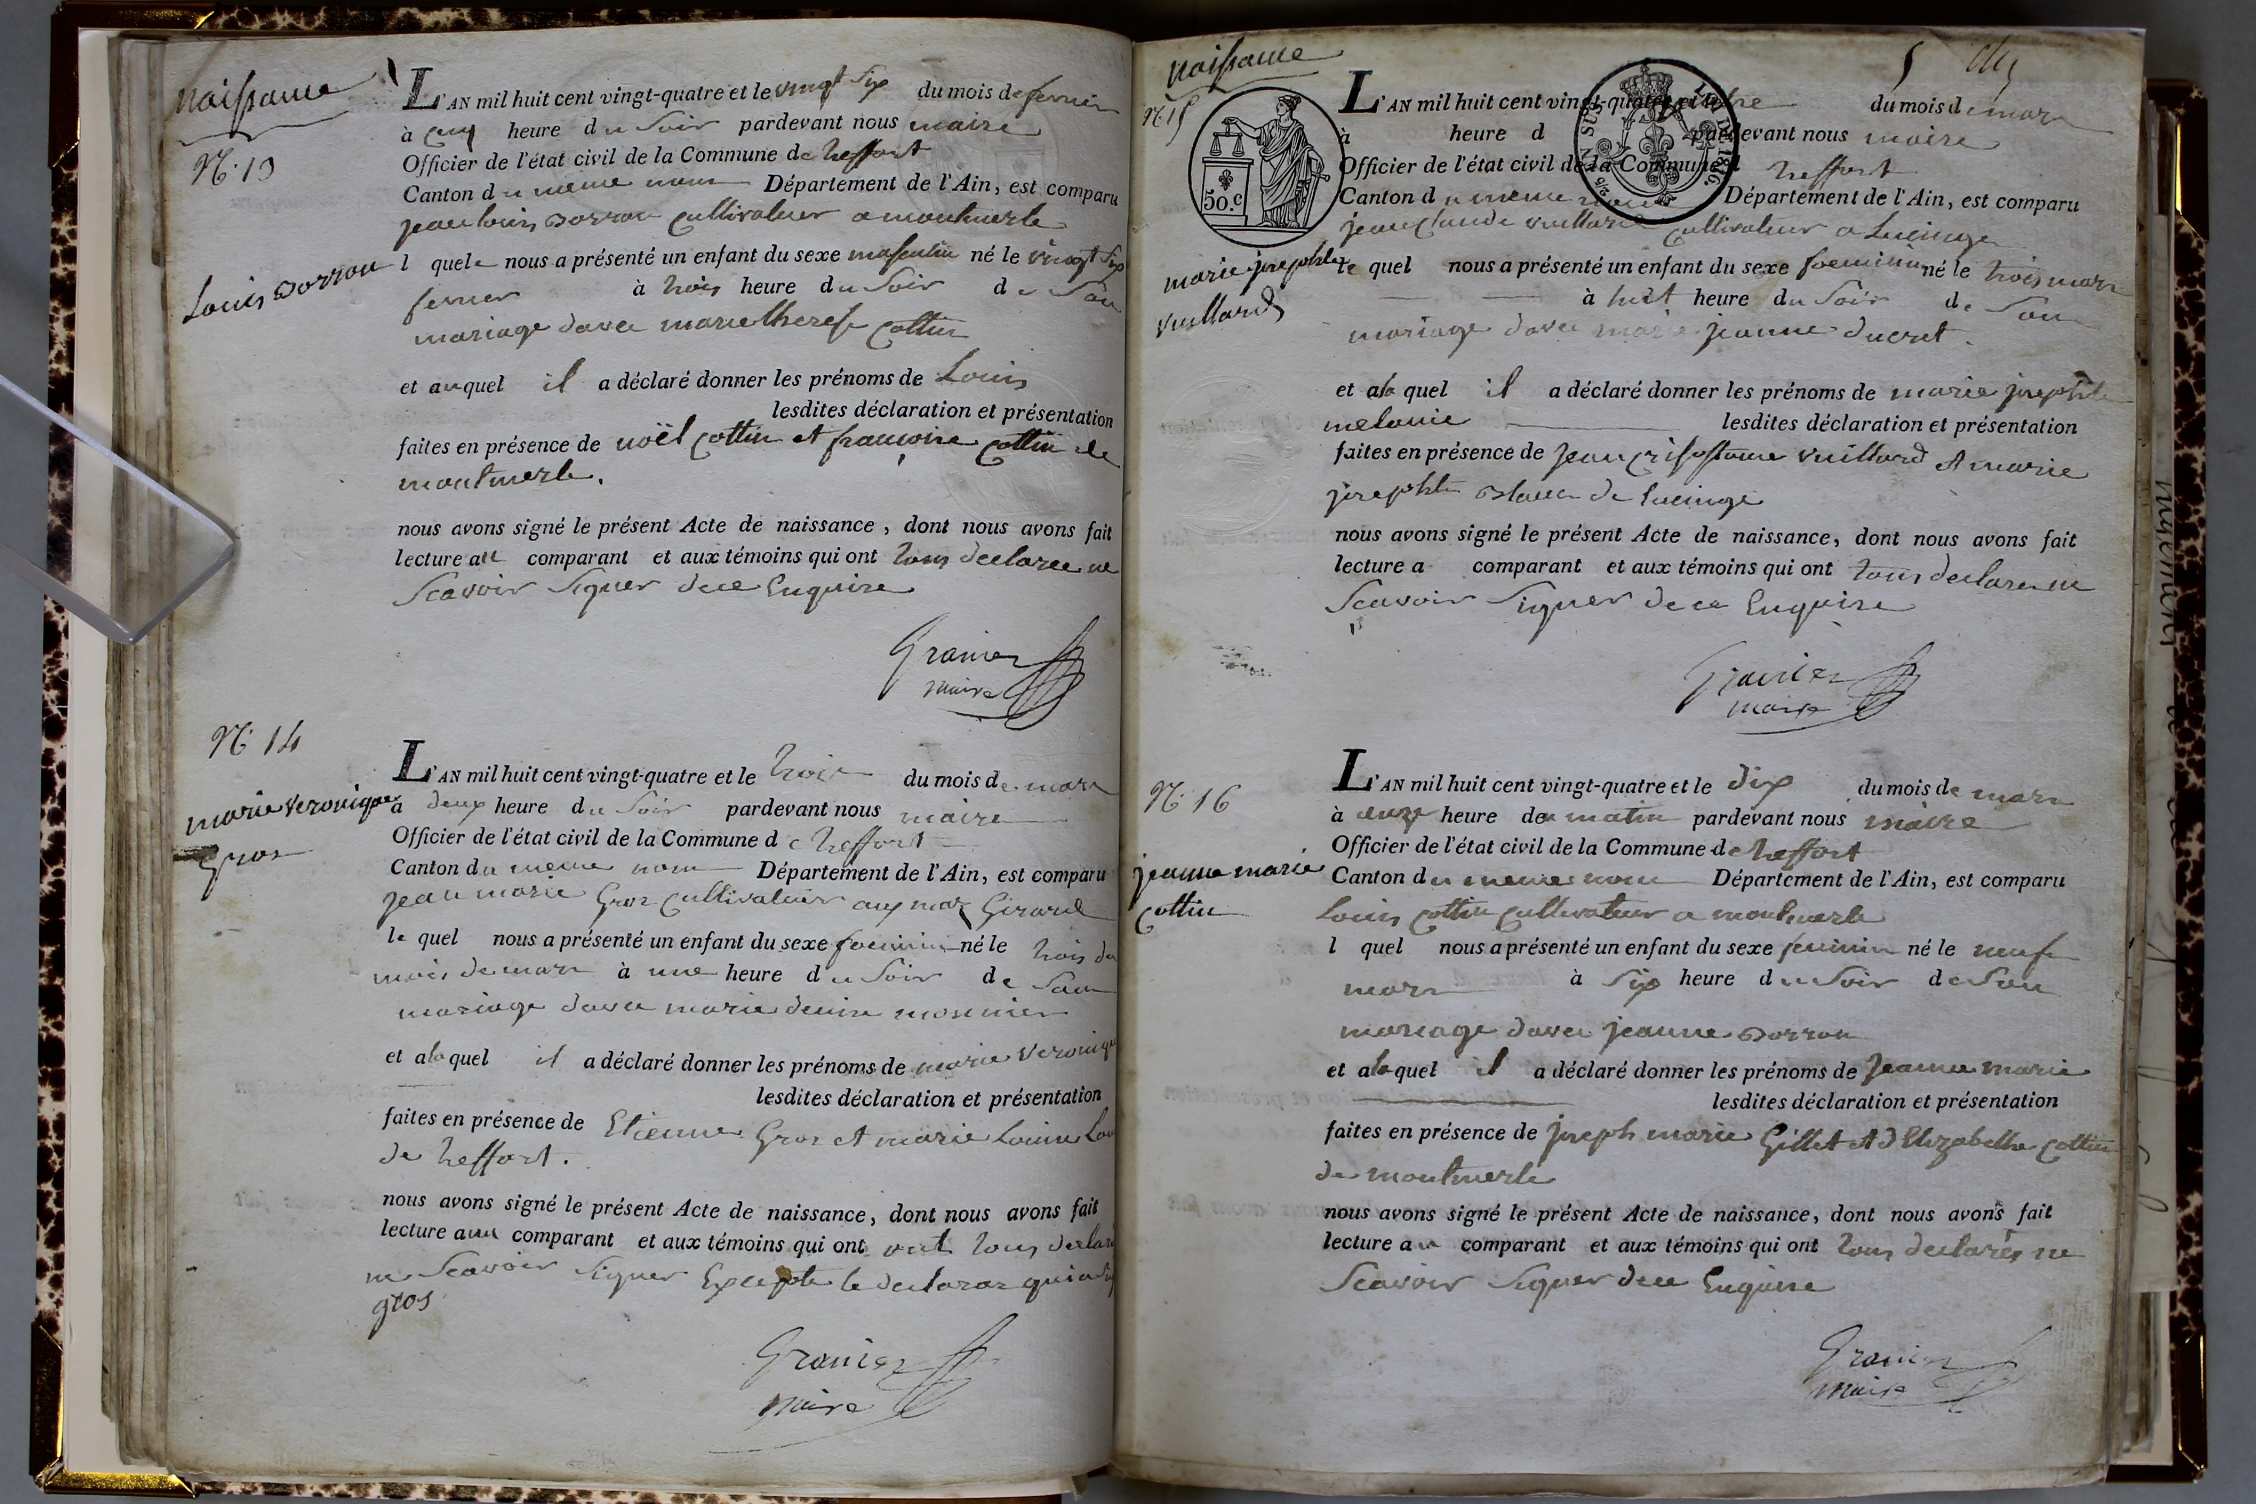 Naissance
N.° 13
Louis Dorron
L'AN mil huit cent vingt-quatre et le vingt six du mois de fevrier
à cinq heure du Soir pardevant nous maire
Officier de l'état civil de la Commune de treffort
Canton du meme nom Département de l'Ain, est comparu
jean louis Dorron cultivateur a montmerle
l quel nous a présenté un enfant du sexe masculin né le vingt Six
fevrier à trois heure du Soir de Son
mariage davec marie therese Cottin
et auquel il a déclaré donner les prénoms de Louis
lesdites déclaration et présentation
faites en présence de noël Cottin et françoise Cottin de
montmerle.
nous avons signé le présent Acte de naissance, dont nous avons fait
lecture au comparant et aux témoins qui ont tous declaree ne
Scavoir Signer dece Enquise
Granier
maire
N.° 14
marie Veronique
Gros
L'AN mil huit cent vingt-quatre et le trois du mois de mars
à deux heure du Soir pardevant nous maire
Officier de l'état civil de la Commune de treffort
Canton du meme nom Département de l'Ain, est comparu
jean marie Gros cultivateur aux maz Girard
le quel nous a présenté un enfant du sexe foeminin né le trois du
mois de mars à une heure du Soir de Son
mariage davec marie denise monnier
et alaquel il a déclaré donner les prénoms de marie Veronique
lesdites déclaration et présentation
faites en présence de Etienne Gros et marie Louise
de treffort.
nous avons signé le présent Acte de naissance, dont nous avons fait
lecture au comparant et aux témoins qui ont tous declaré
ne Scavoir Signer Excepte le declarant qui a
gros
Granier
maire
5
Naissance
N.° 15
50.c
marie josephte
Vuillard
L'AN mil huit cent vingt-quatre et le du mois de mars
à heure d pardevant nous maire
Officier de l'état civil de la Commune d treffort
Canton du meme nom Département de l'Ain, est comparu
jean Claude Vuillard cultivateur a Lucinge
le quel nous a présenté un enfant du sexe foeminin né le trois mars
à huit heure du Soir de Son
mariage davec marie jeanne ducret.
et alaquel il a déclaré donner les prénoms de marie josephte
melanie lesdites déclaration et présentation
faites en présence de jean crisostome Vuillard et marie
josephte de Lucinge
nous avons signé le présent Acte de naissance, dont nous avons fait
lecture a comparant et aux témoins qui ont tous declare ne
Scavoir Signer de ce Enquise
Granier
maire
N.° 16
jeanne marie
Cottin
L'AN mil huit cent vingt-quatre et le dix du mois de mars
à onze heure du matin pardevant nous maire
Officier de l'état civil de la Commune de treffort
Canton du meme nom Département de l'Ain, est comparu
Louis Cottin cultivateur a montmerle
l quel nous a présenté un enfant du sexe feminin né le neuf
mars à Six heure du Soir de Son
mariage davec jeanne Dorron
et alaquel il a déclaré donner les prénoms de Jeanne marie
lesdites déclaration et présentation
faites en présence de joseph marie Gillet et d Elizabethe Cottin
de montmerle
nous avons signé le présent Acte de naissance, dont nous avons fait
lecture au comparant et aux témoins qui ont tous declarés ne
Scavoir Signer dece Enquise
Granier
maire